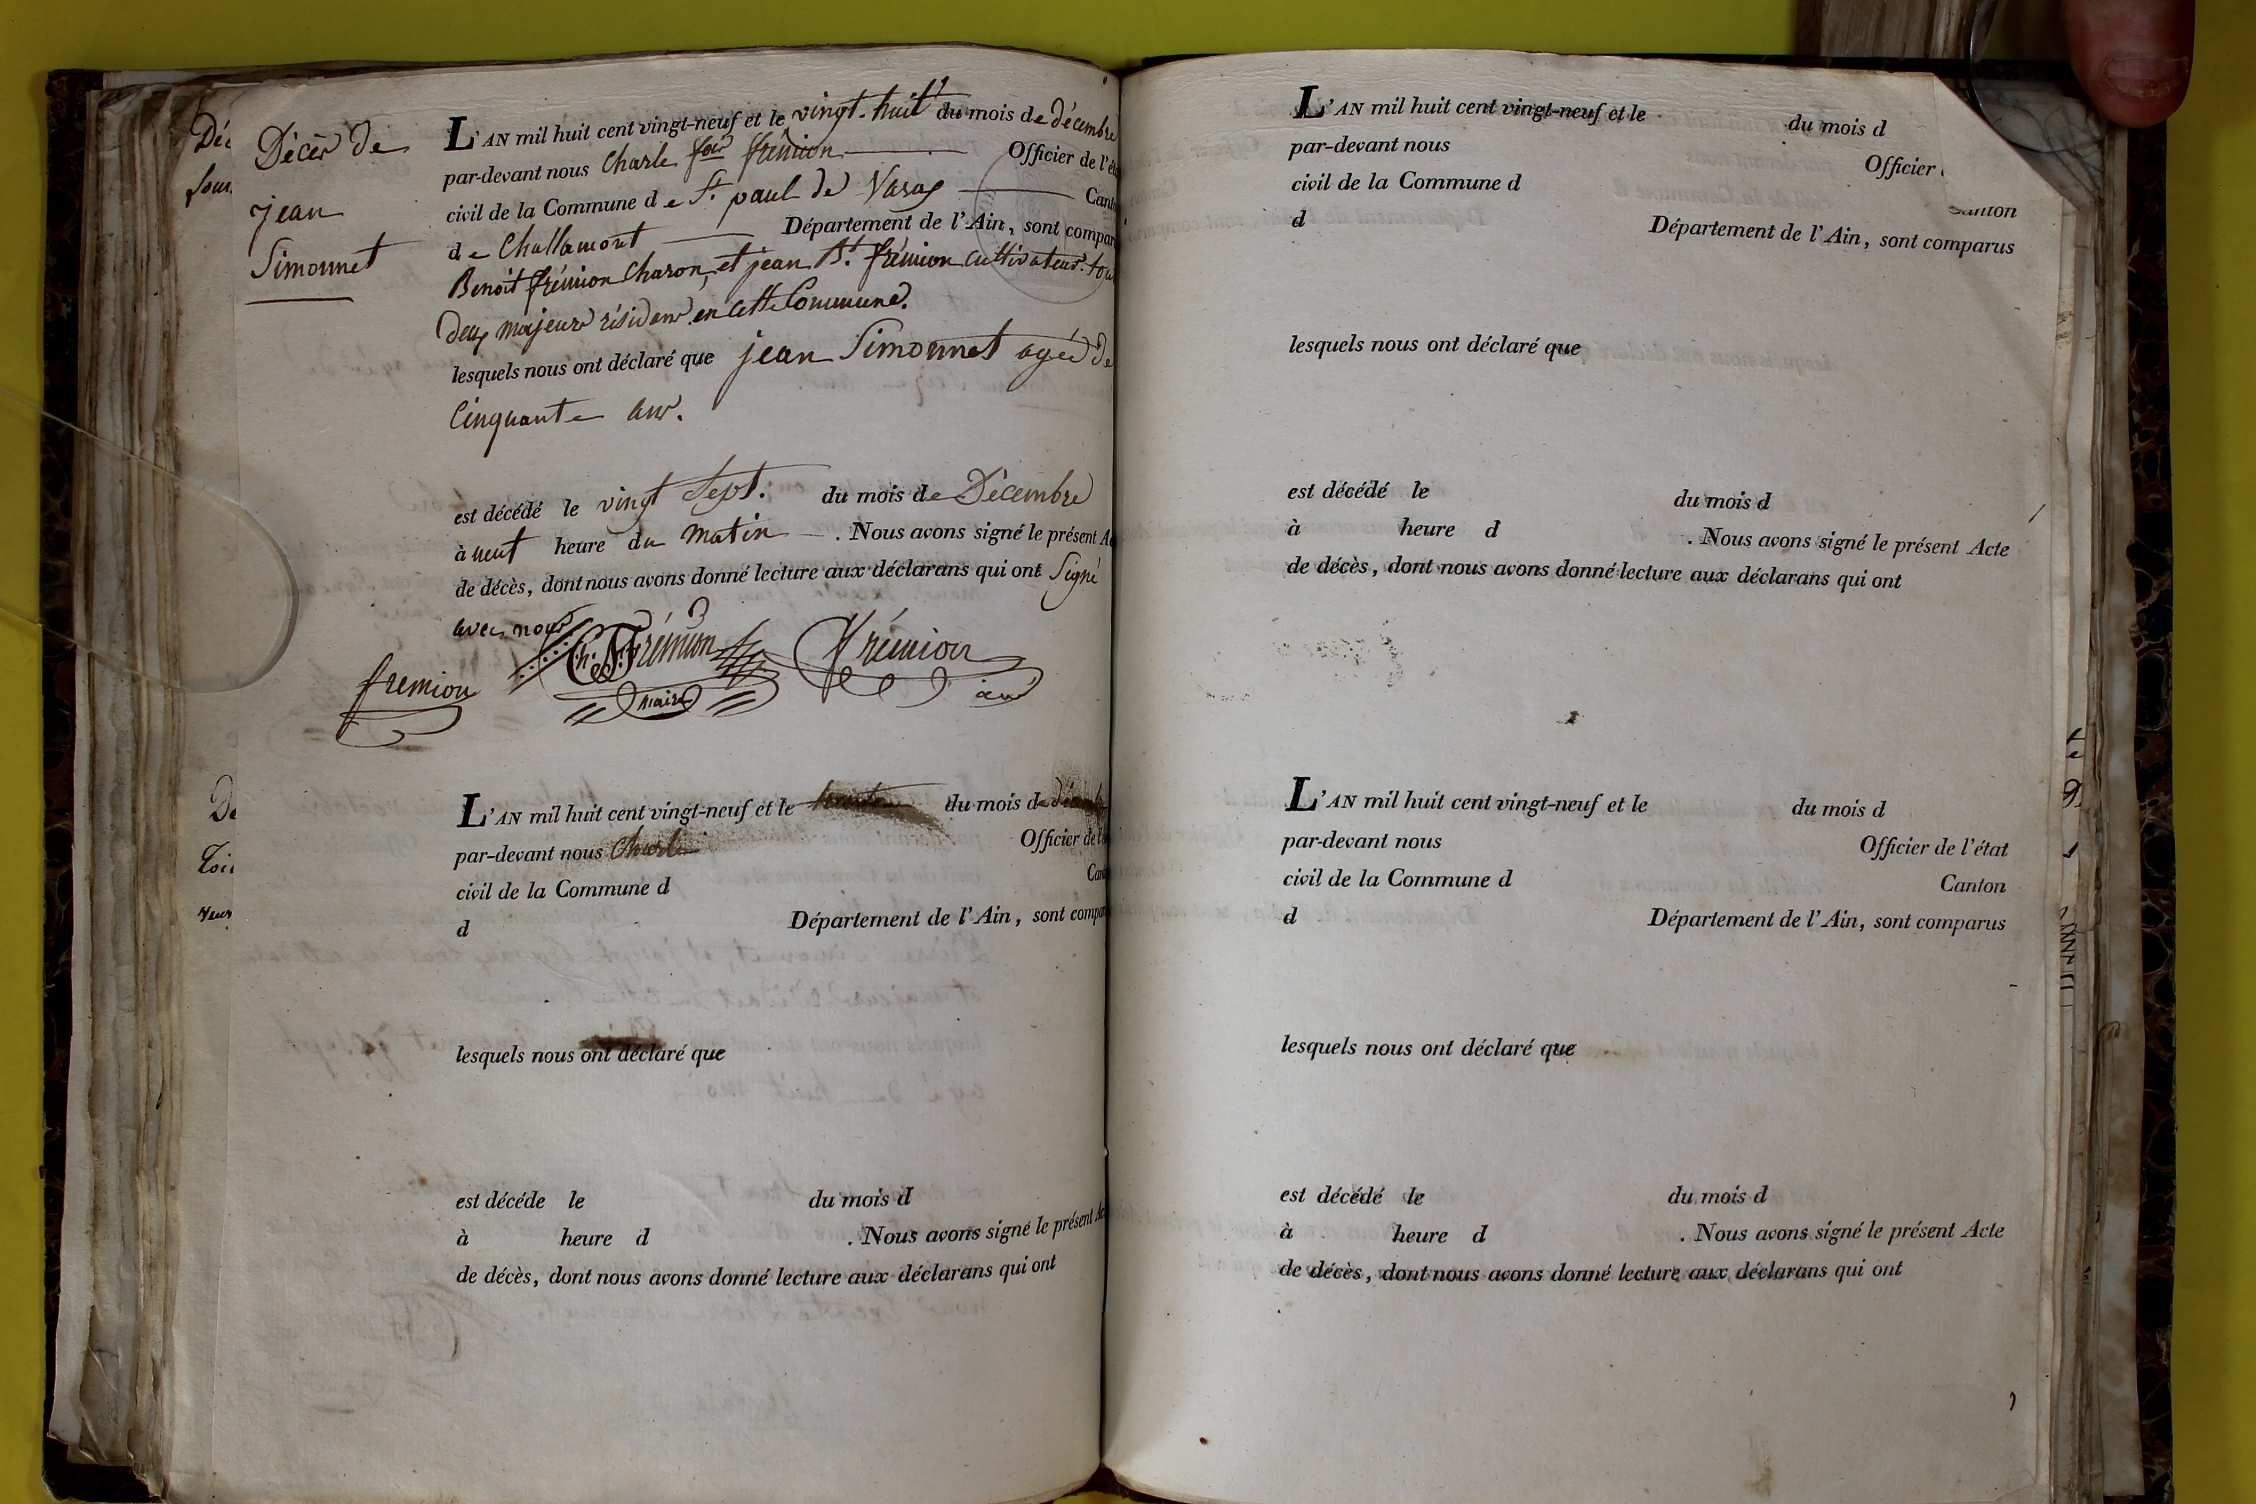 Décès de
jean
Simonnet
L'AN mil huit cent vingt-neuf et le vingt-huit du mois de décembre
par-devant nous Charle fois frémion Officier de l'ét
civil de la Commune de St paul de Varax Canto
de Challamont Département de l'Ain, sont compar
Benoit frémion Charon, et jean Bt. frémion cultivateur. tou
deux majeurs résidens en cette Commune.
lesquels nous ont déclaré que jean Simonnet agée de
Cinquante ans.
est décédé le vingt Sept. du mois de Décembre
à neuf heure du matin . Nous avons signé le présent A
de décès, dont nous avons donné lecture aux déclarans qui ont Signé
avec nous
fremion Ch. F. Frémion Frémion
maire
L'AN mil huit cent vingt-neuf et le trente du mois de décembre
par-devant nous Charle Officier de l'
civil de la Commune d Cant
d Département de l'Ain, sont compar
lesquels nous ont déclaré que
est décéde le du mois d
à heure d . Nous avons signé le présent Ac
de décès, dont nous avons donné lecture aux déclarans qui ont
L'AN mil huit cent vingt-neuf et le du mois d
par-devant nous Officier
civil de la Commune d Canton
d Département de l'Ain, sont comparus
lesquels nous ont déclaré que
est décédé le du mois d
à heure d . Nous avons signé le présent Acte
de décès, dont nous avons donné lecture aux déclarans qui ont
L'AN mil huit cent vingt-neuf et le du mois d
par-devant nous Officier de l'état
civil de la Commune d Canton
d Département de l'Ain, sont comparus
lesquels nous ont déclaré que
est décédé le du mois d
à heure d . Nous avons signé le présent Acte
de décès, dont nous avons donné lecture aux déclarans qui ont